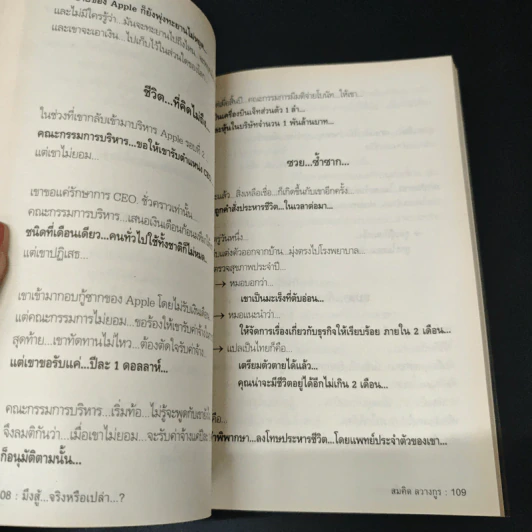 ของ Apple ก็ยังพุ่งทะยานไม่หยุด...
และไม่มีใครรู้ว่า...มันจะทะยานไปถึงไหน
และเขาจะเอาเงิน...ไปเก็บไว้ในส่วนใดของโลก
ชีวิต...ที่คิดไม่ถึง
ในช่วงที่เขากลับเข้ามาบริหาร Apple รอบที่ 2
คณะกรรมการบริหาร...ขอให้เขารับตำแหน่ง CEO
แต่เขาไม่ยอม...
เขาขอแค่รักษาการ CEO. ชั่วคราวเท่านั้น
คณะกรรมการบริหาร...เสนอเงินเดือนก้อนโต
ชนิดที่เดือนเดียว...คนทั่วไปใช้ทั้งชาติก็ไม่หมด
แต่เขาปฏิเสธ...
เขาเข้ามากอบกู้ซากของ Apple โดยไม่รับเงินเดือน
แต่คณะกรรมการไม่ยอม...ขอร้องให้เขารับค่าจ้าง
สุดท้าย...เขาทัดทานไม่ไหว...ต้องตัดใจรับค่าจ้าง
แต่เขาขอรับแค่...ปีละ 1 ดอลลาห์...
คณะกรรมการบริหาร...เริ่มท้อ...ไม่รู้จะพูดกับเขา
จึงลงมติกันว่า...เมื่อเขาไม่ยอม...จะรับค่าจ้าง
ก็อนุมัติตามนั้น...
08 : มึงสู้...จริงหรือเปล่า...?
สิ้นปี...คณะกรรมการมีมติจ่ายโบนัส...ให้เขา
เป็นเครื่องบินเจ็ทส่วนตัว 1 ลำ...
หุ้นในบริษัทจำนวน 1 พันล้านบาท...
ซวย...ซ้ำซาก...
แล้ว...สิ่งเหลือเชื่อ...ก็เกิดขึ้นกับเขาอีกครั้ง
ถูกคำสั่งประหารชีวิต...ในเวลาต่อมา...
ตรู่วันหนึ่ง...
ขับแต่งตัวออกจากบ้าน...มุ่งตรงไปโรงพยาบาล...
ตรวจสุขภาพประจำปี...
→ หมอบอกว่า...
เขาเป็นมะเร็งที่ตับอ่อน...
→ หมอแนะนำว่า...
ให้จัดการเรื่องเกี่ยวกับธุรกิจให้เรียบร้อย ภายใน 2 เดือน...
→ แปลเป็นไทยก็คือ...
เตรียมตัวตายได้แล้ว...
คุณน่าจะมีชีวิตอยู่ได้อีกไม่เกิน 2 เดือน...
คือ...
คำพิพากษา...ลงโทษประหารชีวิต...โดยแพทย์ประจำตัวของเขา...
สมคิด ลวางกูร : 109